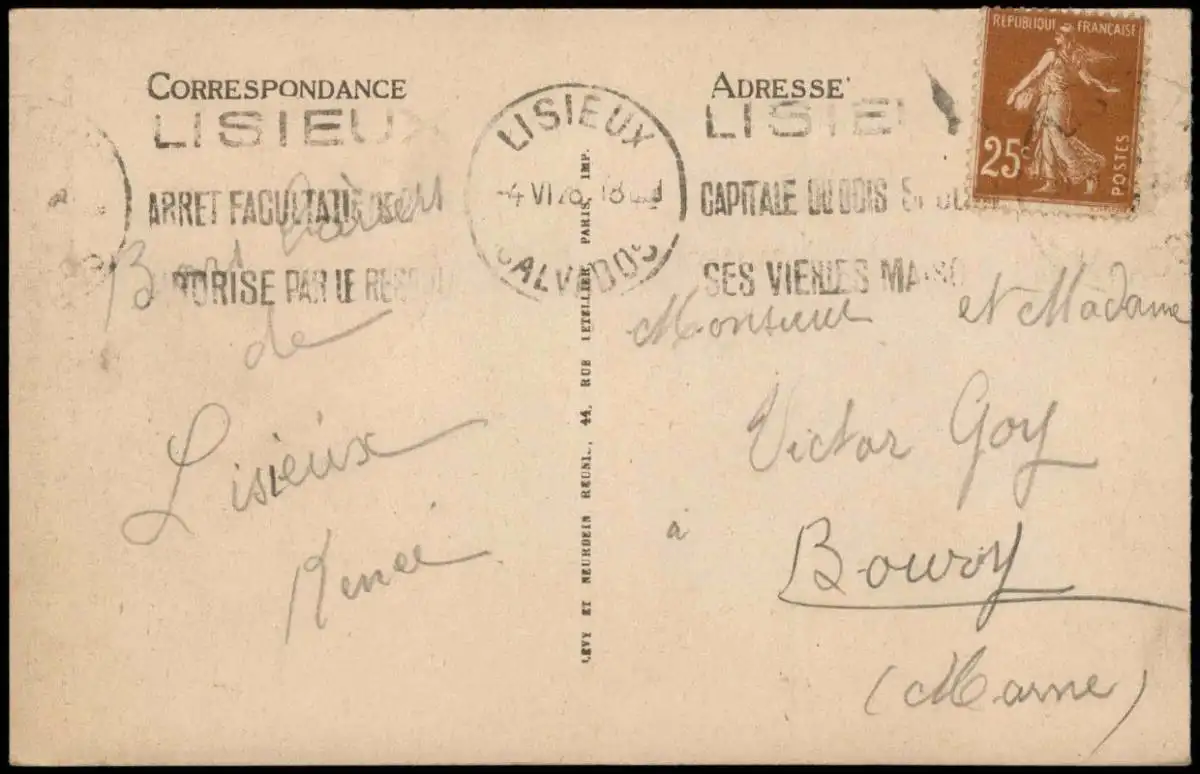 CORRESPONDANCE
LISIEUX
ARRET FACULTATIF
PAR LE
Bons baisers
de
Lisieux
Renée
LISIEUX
-4 VI 18
CALVADOS
LEVY ET NEURDEIN REUNIS, 44, RUE LETELLIER, PARIS, IMP.
ADRESSE
LISIEU
CAPITALE DU BOIS SCULPTE
SES VIEILLES MAISO
REPUBLIQUE FRANÇAISE
25c
POSTES
Monsieur et Madame
Victor Goy
à Bouvoy
(Marne)